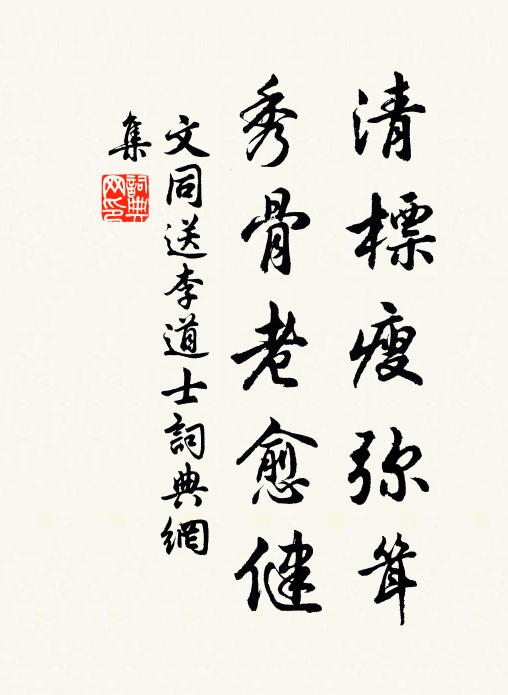 清標瘦弥聳
秀骨老愈健
文同送李道士詞典網
集
詞典網印